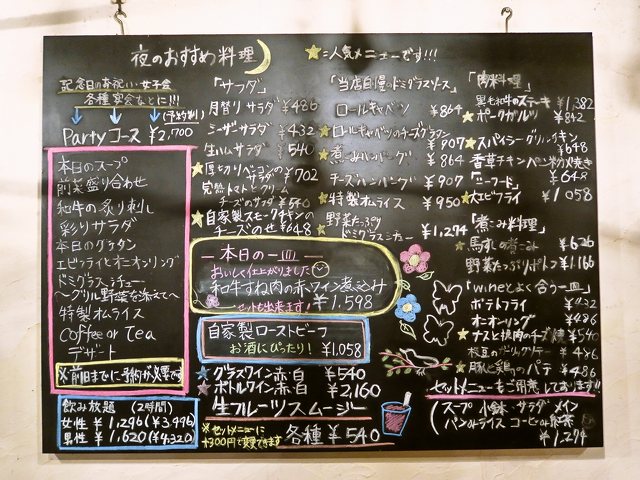 夜のおすすめ料理
★=人気メニューです!!!
記念日のお祝い・女子会
各種宴会などに!!!
(予約制)
Partyコース ¥2,700
本日のスープ
前菜盛り合わせ
和牛の炙り刺し
彩りサラダ
本日のグラタン
エビフライとオニオンリング
ドミグラスシチュー
〜グリル野菜を添えて〜
特製オムライス
coffee or tea
デザート
※前日までに予約が必要です
飲み放題 (2時間)
女性 ¥1,296(¥3,996)
男性 ¥1,620(¥4,320)
「サラダ」
月替りサラダ ¥486
シーザーサラダ ¥432
生ハムサラダ ¥540
★厚切りベーコンの
サラダ ¥702
完熟トマトとクリーム
チーズのサラダ ¥540
★自家製スモークチキンの
チーズのせ ¥648
「当店自慢のドミグラスソース」
ロールキャベツ ¥864
★ロールキャベツのチーズグラタン
¥907
★煮こみハンバーグ ¥864
チーズハンバーグ ¥907
★特製オムライス ¥950
野菜たっぷり
ドミグラスシチュー ¥1,274
「肉料理」
黒毛和牛のステーキ ¥1,382
★ポークガルツ ¥842
★スパイシーグリルチキン
¥648
香草チキンパン粉焼き
¥648
「シーフード」
★大エビフライ ¥1058
「煮こみ料理」
★馬すじ煮こみ ¥626
野菜たっぷりポトフ ¥1,166
「wineとよく合う一皿」
ポテトフライ ¥432
オニオンリング ¥486
★ナスと挽肉のチーズ焼 ¥540
枝豆のガーリックソテー ¥486
★豚と鶏のパテ ¥486
セットメニューもご用意しております!!
(スープ 小鉢 サラダ メイン
パンorライス コーヒーor紅茶
¥1,274
ー本日の一皿ー
おいしく仕上がりました
和牛すね肉の赤ワイン煮込み
セットも出来ます! ¥1,598
自家製ローストビーフ
お酒にぴったり! ¥1,058
★グラスワイン赤・白 ¥540
★ボトルワイン赤・白 ¥2,160
生フルーツスムージー
※セットメニューに
+300円で変更できます
各種 ¥540